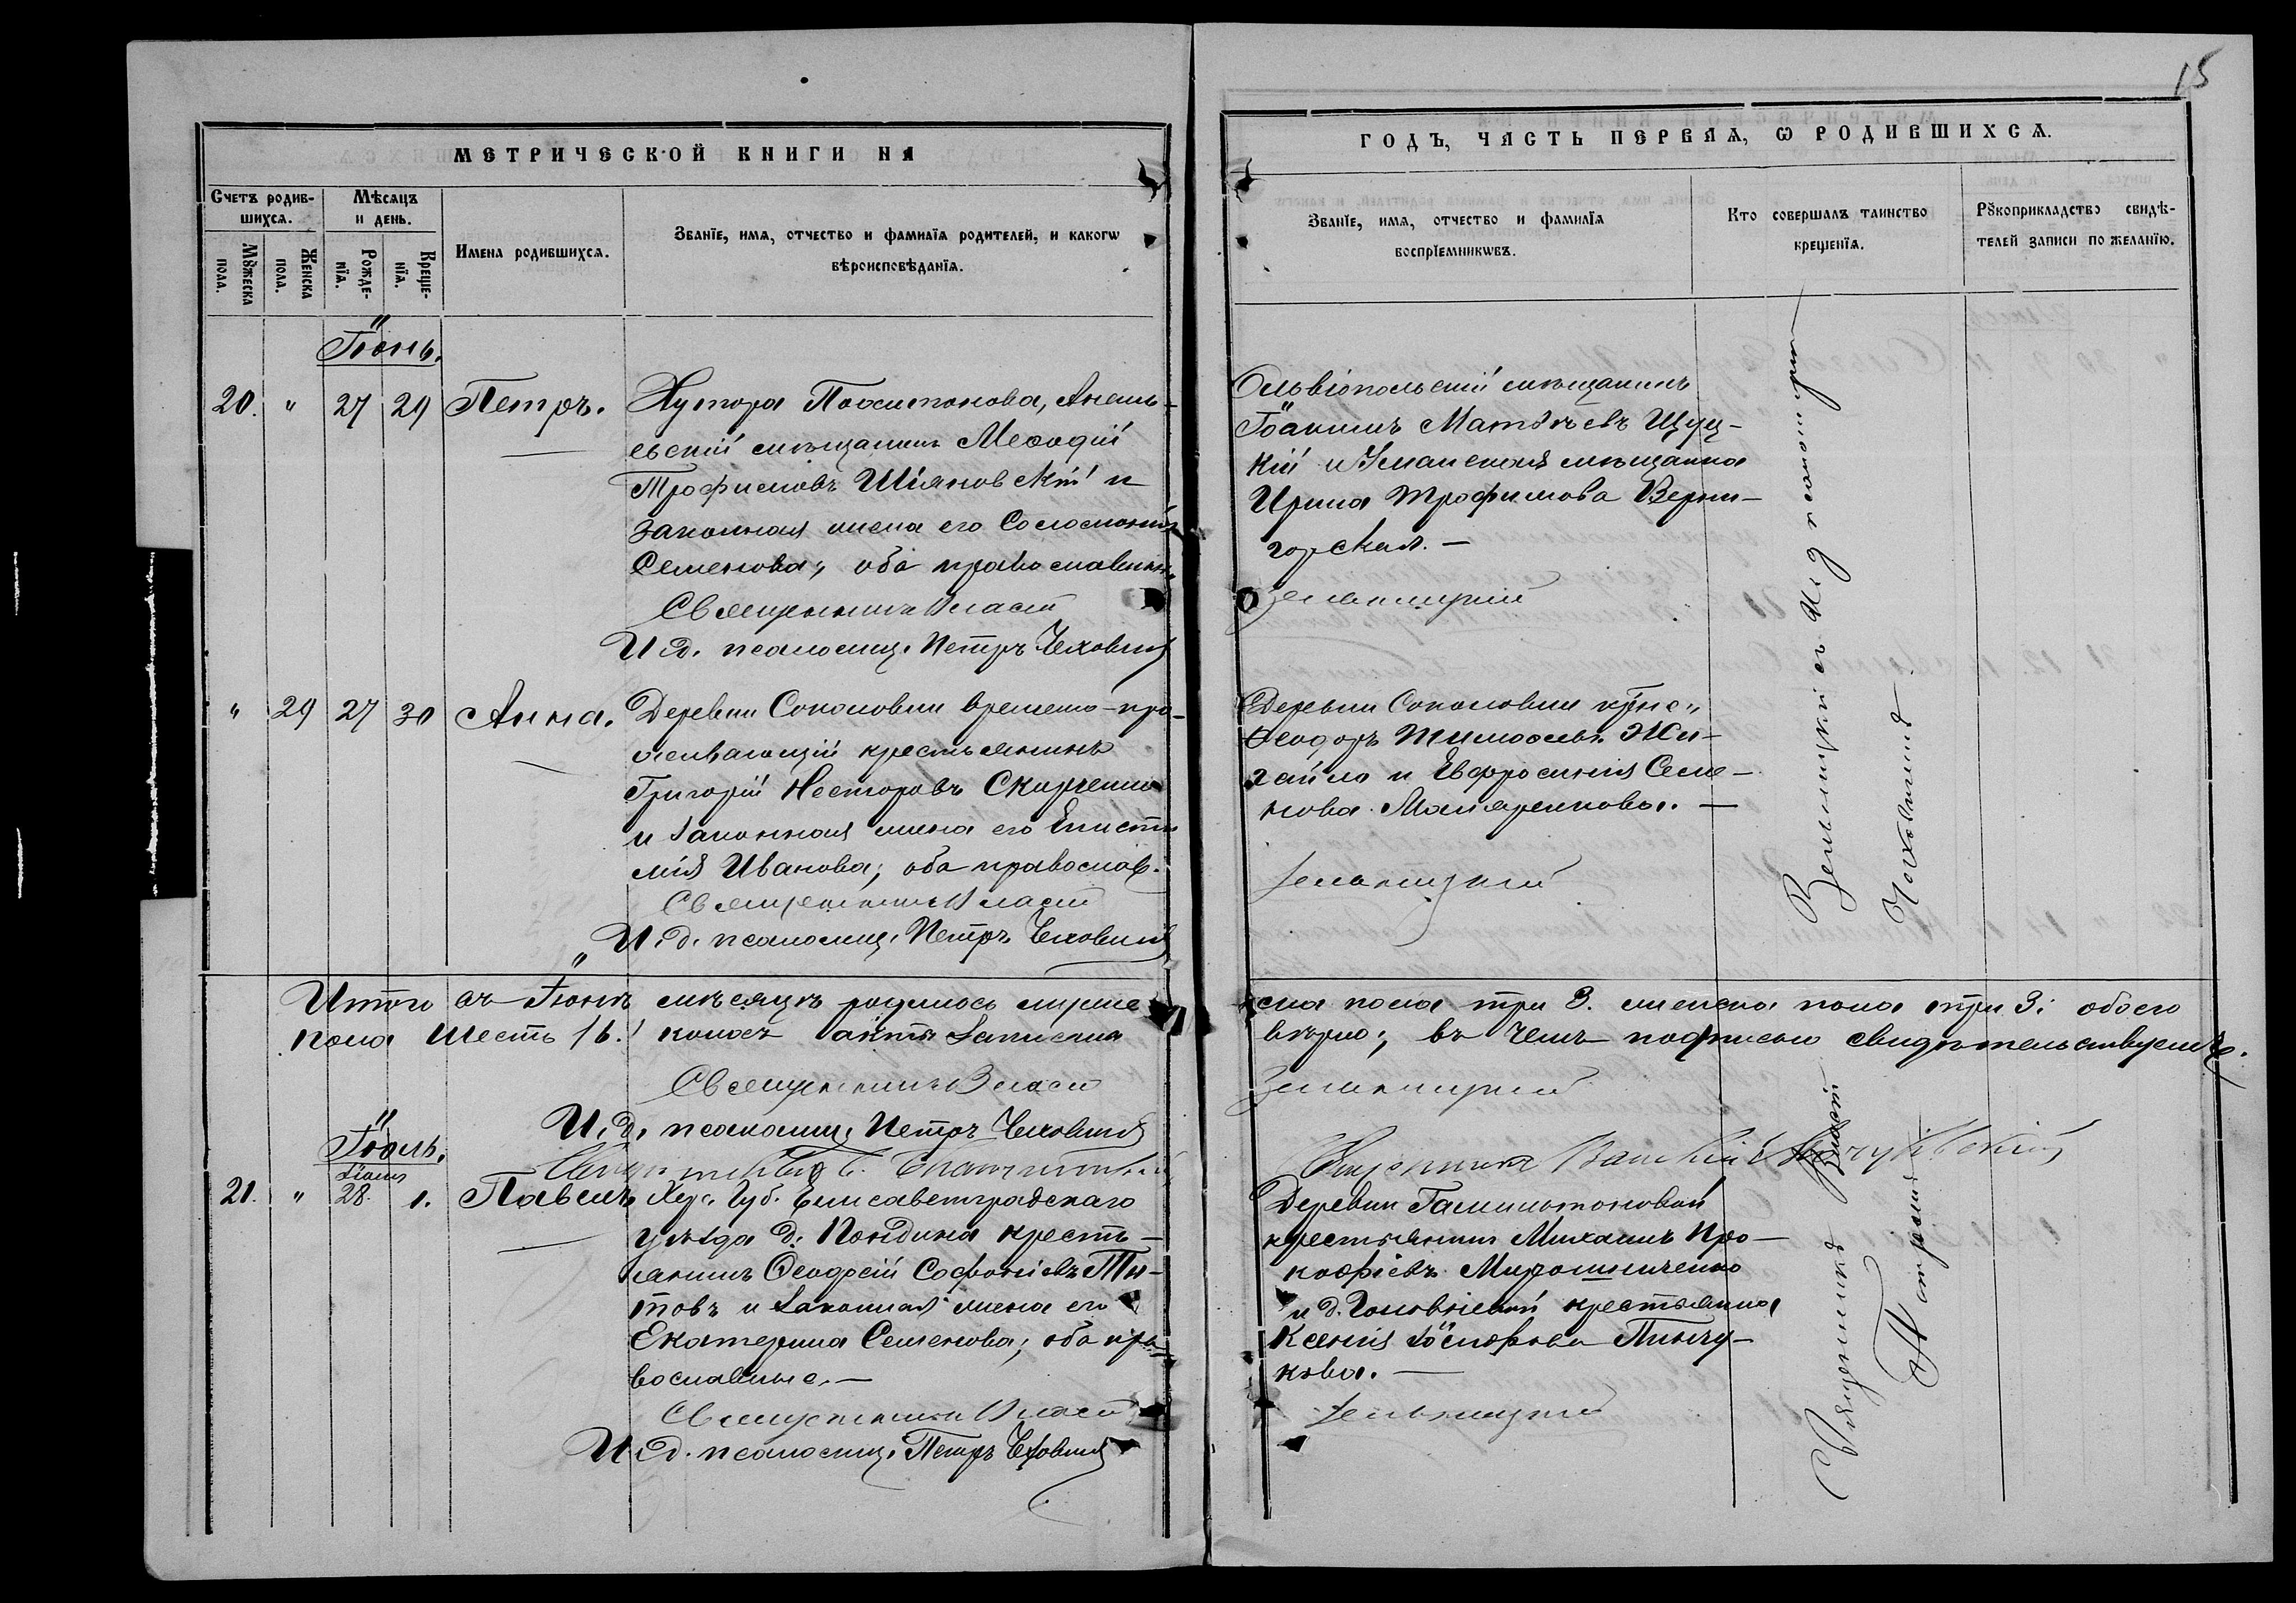 15
МЕТРИЧЕСКОЙ КНИГИ НА
Счетъ родив-
шихсѧ.
Мѣсѧцъ
и день.
Мꙋжеска
пола.
Женска
пола.
Рожде-
нїѧ.
Креще-
нїѧ.
Имена родившихсѧ.
Званїе, имѧ, отчество и фамилїѧ родителей, и какогѡ
вѣроисповѣданїѧ.
Іюнь.
20. " 27 29 Петръ.
Хутора Посситонова, Анань-
евскій мѣщанинъ Меѳодій
Трофимовъ Шіяновскій и
законная жена его Соломонія
Семенова; оба православны.
Священникъ Власій
И. д. псаломщ. Петръ Чеховичъ
" 29 27 30 Анна.
Деревни Соколовки временно-про-
живающій крестьянинъ
Григорій Несторовъ Скирченко
и законная жена его Еписти-
мія Иванова; оба православ.
Священникъ Власій
И. д. псаломщ. Петръ Чеховичъ
Итого въ Іюнѣ мѣсяцѣ родилось муже
пола шесть /6./ коихъ акты записаны
Священникъ Власій
И. д. псаломщ. Петръ Чеховичъ
Іюль.
Іюня
21. " 28. 1. Павелъ
Хер. Губ. Елисаветградскаго
уѣзда д. Пондина кресть-
янинъ Ѳеодосій Софоніевъ Ти-
товъ и законная жена его
Екатерина Семенова; оба пра-
вославные. —
Священникъ Власій
И. д. псаломщ. Петръ Чеховичъ
ГОДЪ, ЧАСТЬ ПЕРВАѦ, Ѡ РОДИВШИХСѦ.
Званїе, имѧ, отчество и фамилїѧ
воспрїемникѡвъ.
Кто совершалъ таинство
крещенїѧ.
Рꙋкоприкладство свидѣ-
телей записи по желанїю.
Ольвіопольскій мѣщанинъ
Іоакимъ Матѳѣевъ Щуц-
кій и Уманская мѣщанка
Ирина Трофимова Верни-
горская. —
Зельницкій
Деревни Соколовки крес.
Ѳеодоръ Тимоѳеевъ Жи-
гайло и Евфросинія Семе-
нова Маляренкова. —
Зельницкій
ска пола три 3. женска пола три 3: обоего
вѣрно; въ чемъ подписью свидѣтельствуемъ.
Зельницкій
Деревни Гамильтоновой
крестьянинъ Михаилъ Про-
кофіевъ Мирошниченко
и д. крестьянка
Ксенія Іосифова Пинчу-
кова. —
Зельницкій
Священникъ Власій
Зельницкій и И. д. псаломщ.
Чеховичъ